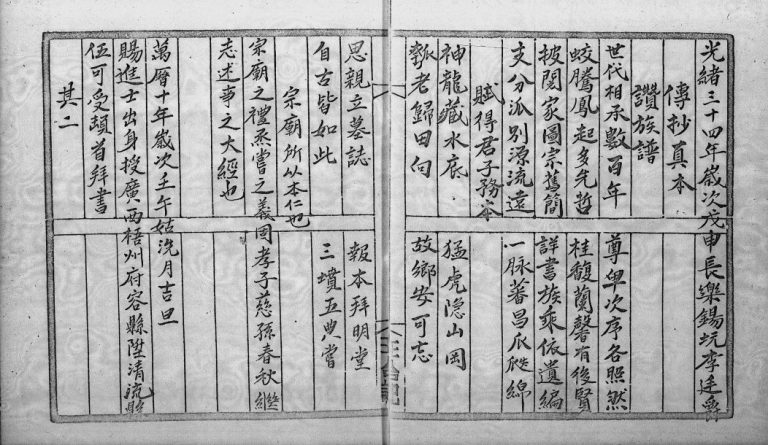 光緒三十四年歲次戊申長樂錫坑李廷爵
傳抄真本
讚族譜
世代相承數百年 尊卑次序各照然
蛟騰鳳起多先哲 桂馥蘭馨有後賢
披閱家圖宗舊簡 詳書族乘依遺編
支分派別源流遠 一脉蕃昌瓜瓞綿
賦得君子務本
神龍藏水底 猛虎隐山岡
瓡老歸田向 故鄉安可忘
思親立墓誌 報本拜明堂
自古皆如此 三墳五典嘗
宗廟所以本仁也
宗廟之禮烝嘗之義同孝子慈孫春秋繼
志述事之大經也
萬曆十年歲次壬午姑洗月吉旦
賜進士出身授廣西梧州府容縣陞清流縣
伍可受頓首拜書
其二